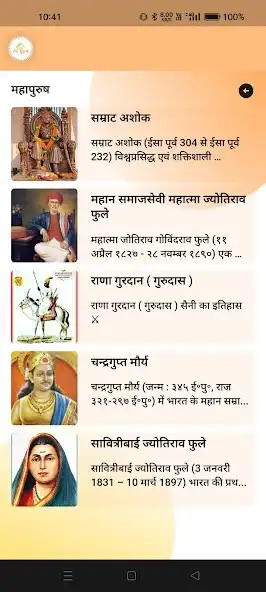 10:41
8.00
100%
महापुरुष
सम्राट अशोक
सम्राट अशोक (ईसा पूर्व 304 से ईसा पूर्व
232) विश्वप्रसिद्ध एवं शक्तिशाली ...
महान समाजसेवी महात्मा ज्योतिराव
फुले
महात्मा जोतिराव गोविंदराव फुले (११
अप्रैल १८२७ - २८ नवम्बर १८९०) एक ...
राणा गुरदान ( गुरुदास )
राणा गुरदान ( गुरुदास ) सैनी का इतिहास
⚔
चन्द्रगुप्त मौर्य
चन्द्रगुप्त मौर्य (जन्म : ३४५ ई॰पु॰, राज
३२१-२९७ ई॰पु॰) में भारत के महान सम्रा...
सावित्रीबाई ज्योतिराव फुले
सावित्रीबाई ज्योतिराव फुले (3 जनवरी
1831 – 10 मार्च 1897) भारत की प्रथ...